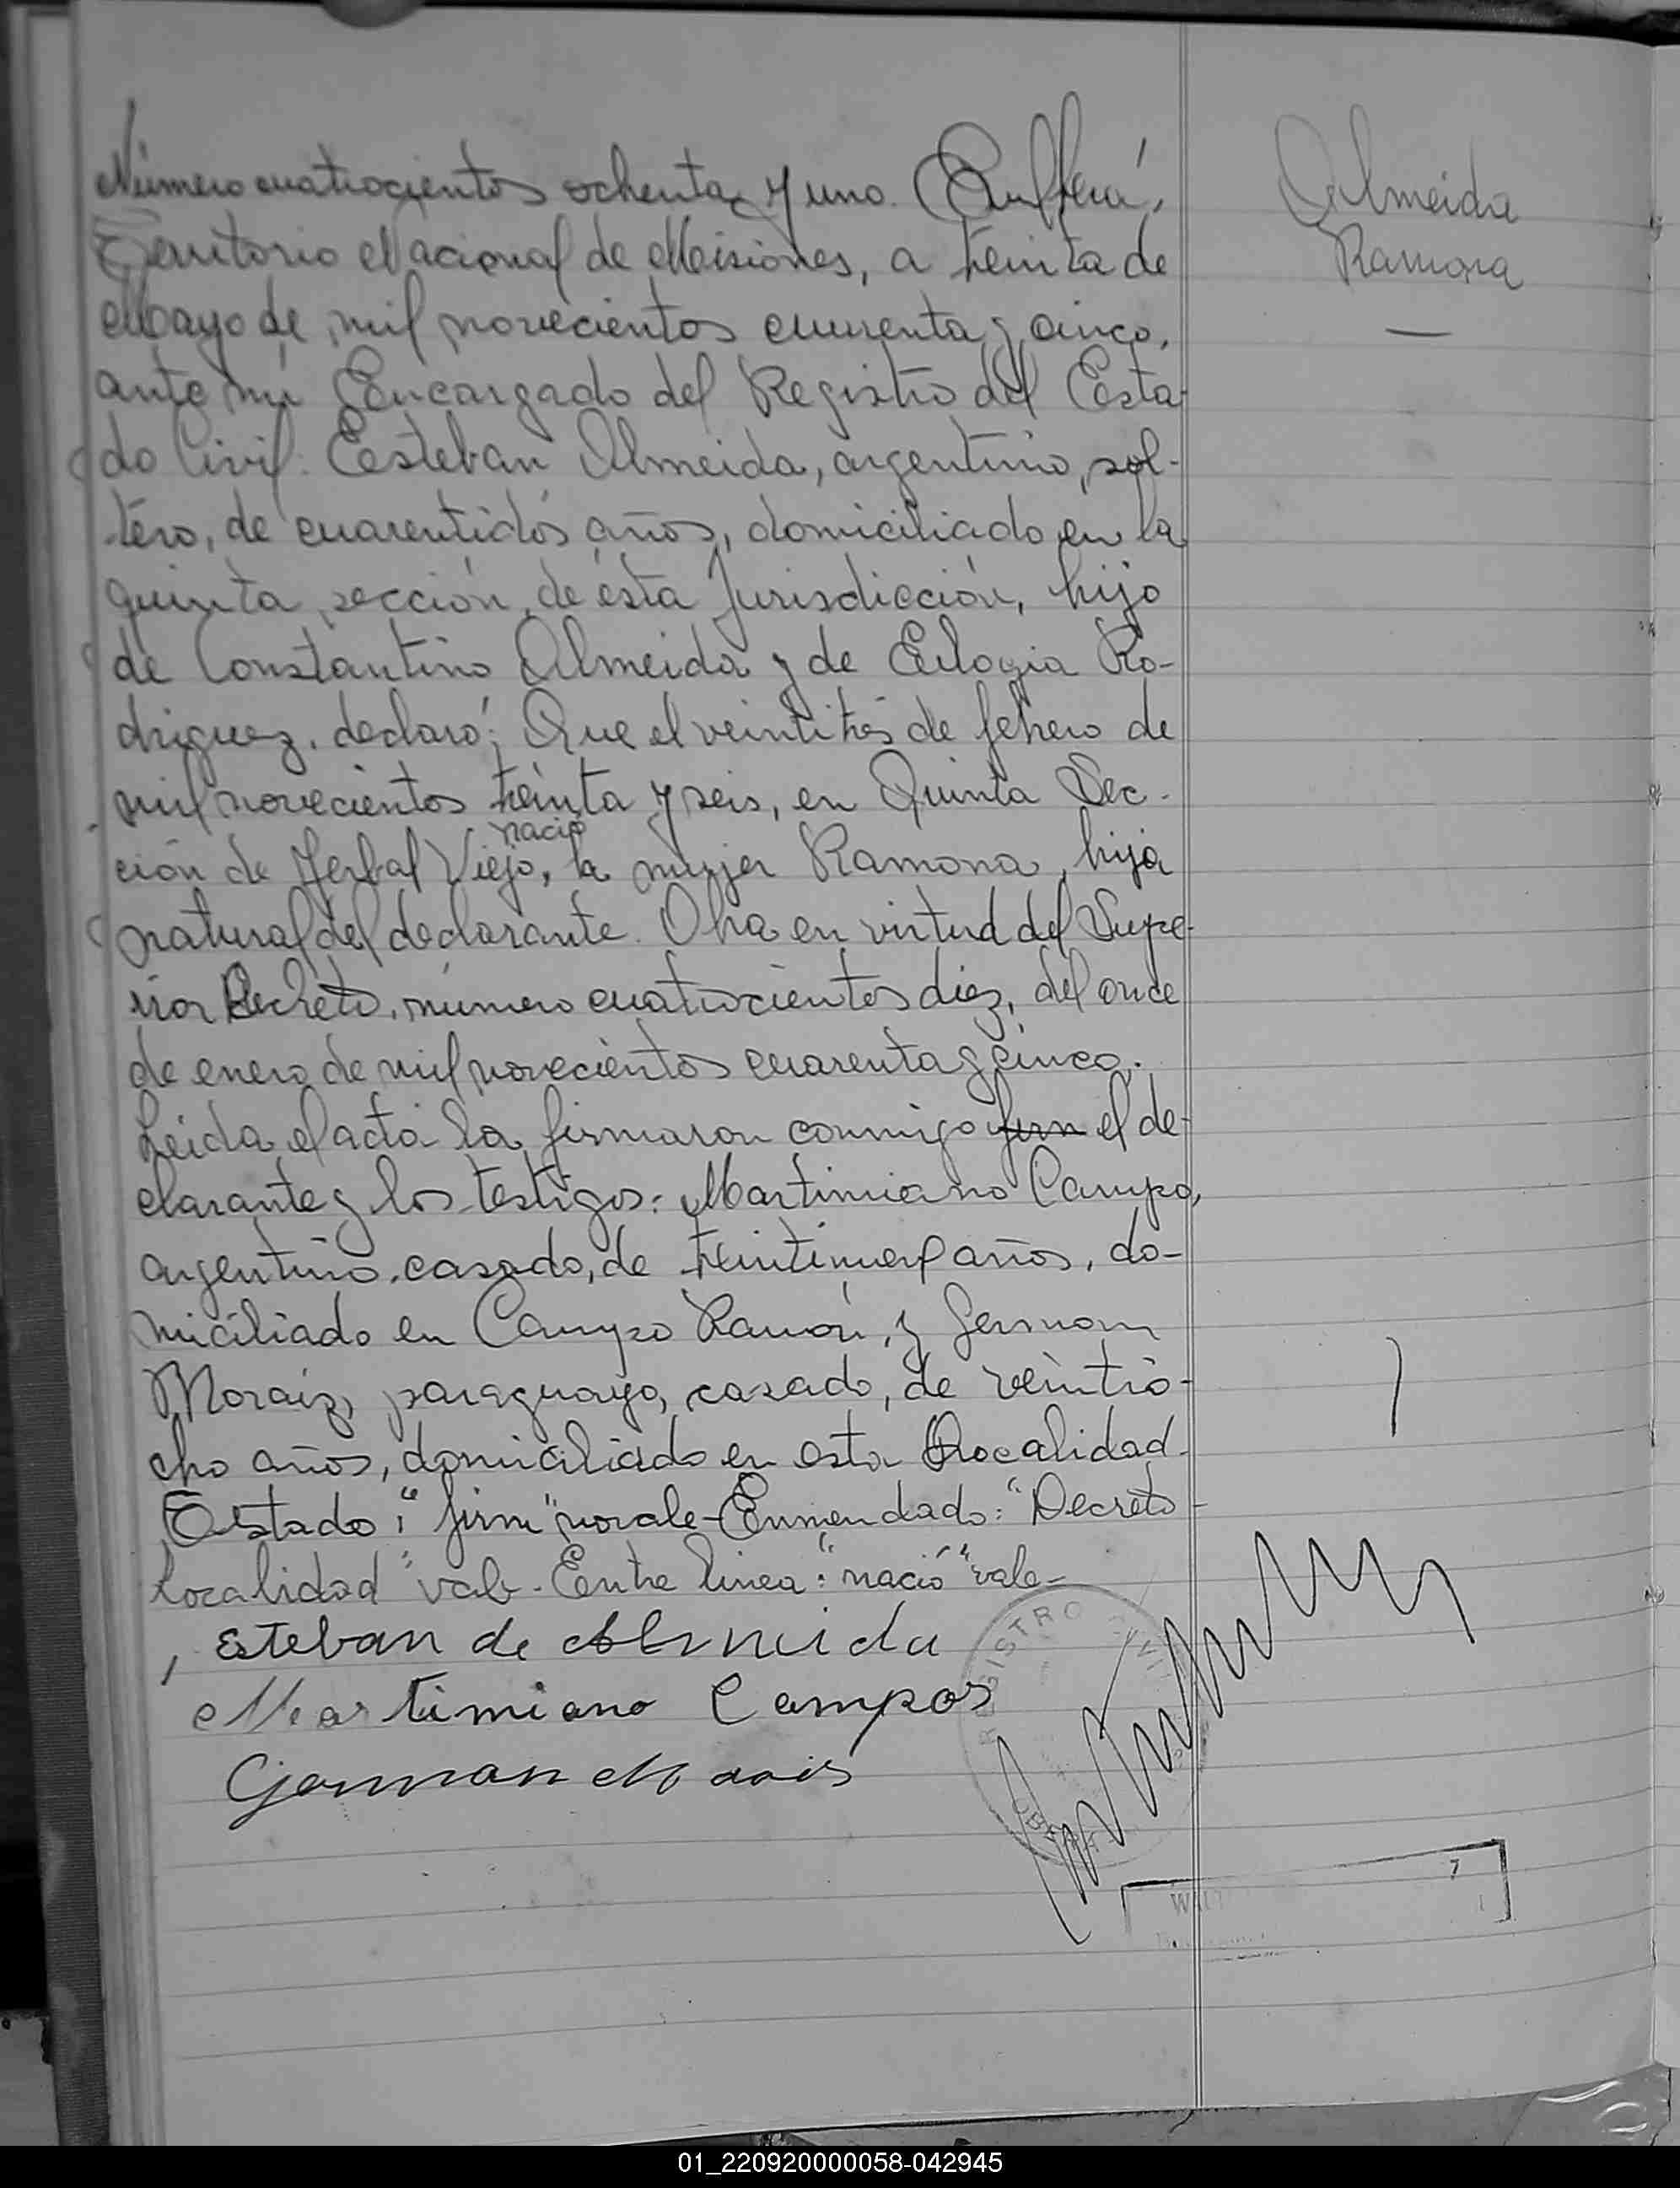 Número cuatrocientos ochenta y uno. En Oberá,
Territorio Nacional de Misiones, a treinta de
Mayo de mil novecientos cuarenta y cinco,
ante mi Encargado del Registro del Esta-
do Civil: Esteban Almeida, argentino, sol-
tero, de cuarentidós años, domiciliado en la
quinta sección, de ésta Jurisdicción, hijo
de Constantino Almeida y de Eulogia Ro-
driguez, declaró: Que el veintitrés de febrero de
mil novecientos treinta y seis, en Quinta Sec-
nació
ción de Yerbal Viejo, la mujer Ramona, hija
natural del declarante. Obra en virtud del Supe-
rior Decreto, número cuatrocientos diez, del once
de enero de mil novecientos cuarenta y cinco.
Leida el acta la firmaron conmigo firm el de-
clarante y los testigos: Martimiano Campo,
argentino, casado, de años, do-
miciliado en Campo Ramón, y German
Moraiz, paraguayo, casado, de veintio-
cho años, domiciliado en esta Localidad.
Testado: "firm" no vale - Enmendado: "Decreto -
Localidad" vale - Entre linea: "nació" vale -
Esteban de Almeida
Martimiano Campos
German Morais
Almeida
Ramona
REGISTRO CIVIL
OBERA
7
01_220920000058-042945